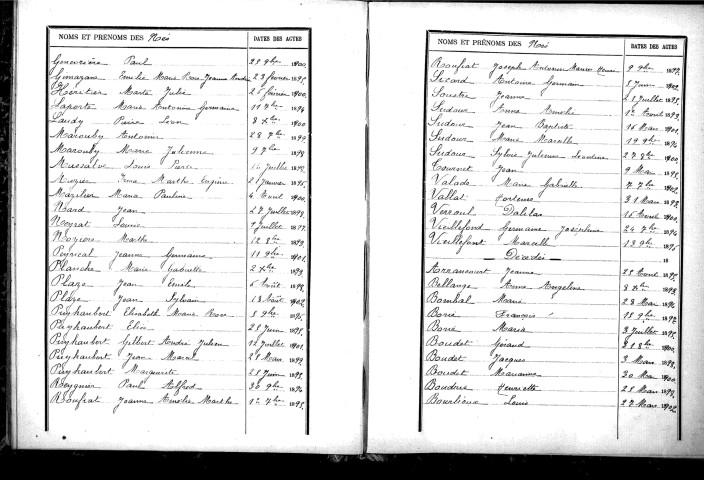 NOMS ET PRENOMS DES Nés DATES DES ACTES
Paul 29 9bre 1900
Emélie Marie Rose Jeanne 23 février 1895
Héritier Marie Julie 25 février 1900
Laporte Marie Antonine Germaine 11 7bre 1896
Laudy Pierre Léon 8 Xbre 1900
Marouby Antonin 28 7bre
Marouby Marie Julienne 9 7bre 1898
Massalve Louis Pierre 14 Juillet
Irma Marthe Eugénie 21 Janvier 1895
Mazilier Maria Pauline 4 Avril 1900
Nard Jean 27 Juillet 1899
Neyrat Louis 1 Juillet 1897
Noziere Marthe 12 8bre 1899
Peyrical Jeanne Germaine 11 9bre 1901
Planche Marie Gabrielle 2 Xbre 1899
Plaze Jean Emile 6 Août 1899
Plaze Jean Sylvain 18 Août 1902
Puyhaubert Elisabeth Marie Rose 8 9bre 1895
Puyhaubert Elise 28 Juin 1898
Puyhaubert Gilbert André Julien 12 Juillet 1901
Puyhaubert Jean Marie 21 Mars 1899
Puyhaubert Marguerite 28 Juin 1898
Reygnier Paul Alfred 30 9bre 1896
Roufrat Jeanne Amélie Marthe 1er 7bre 1898
NOMS ET PRÉNOMS DES Nés DATES DES ACTES
Roufrat Joseph Antonin Marie Henri 9 9bre 1899
Sicard Antoine Germain 8 Juin 1902
Soustre Jeanne 21 Juillet 1895
Sudour Anna Amélie 1er Avril 1899
Sudour Jean Baptiste 16 Mars 1901
Sudour Marie Marcelle 19 9bre 1896
Sudour Sylvie Julienne Léontine 27 8bre 1900
Tournet Jean 9 Mars 1895
Valade Marie Gabrielle 7 7bre 1902
Vallat Hortense 31 Mars 1899
Verroul Dalila 16 Avril 1900
Vieillefond Germaine Joséphine 24 7bre 1896
Vieillefont Marcelle 18 9bre 1895
Décédés 18
Arzancourt Jeanne 28 Avril 1895
Bellange Anna Angeline 8 Xbre 1899
Bombal Marie 28 Mars 1896
Borie François 15 9bre 1892
Borie Maria 3 Juillet 1895
Boudet Géraud 21 8bre 1900
Boudet Jacques 3 Mars 1899
Boudet Marianne 20 Mars 1900
Boudrie Henriette 28 Mars 1899
Bourlioux Louis 27 Mars 1902